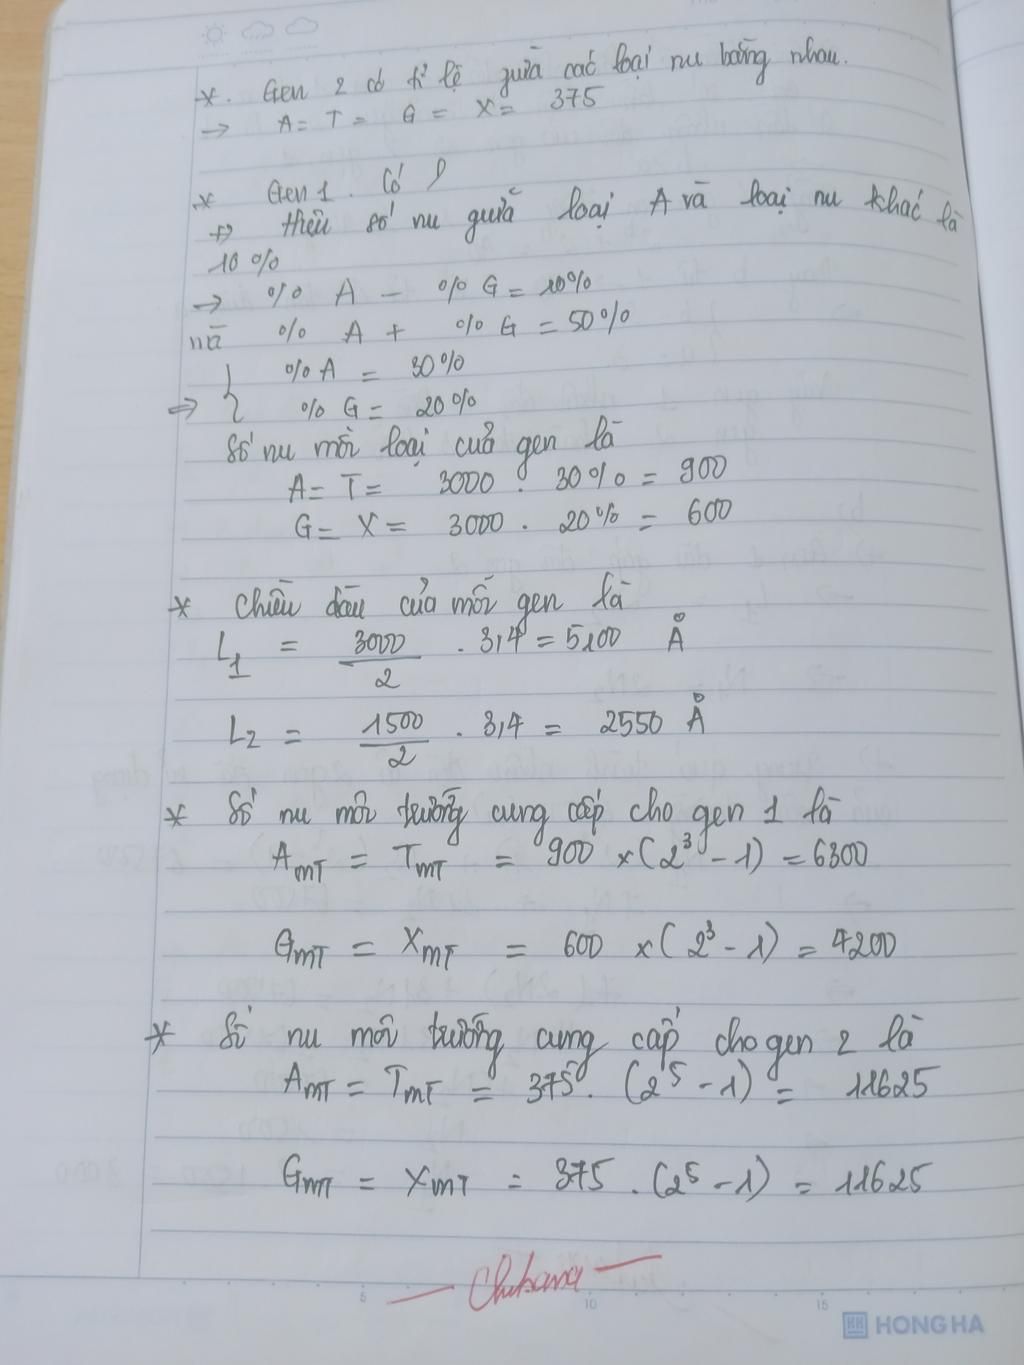 *. Gen 2 có tỉ lệ giữa các loại nu bằng nhau.
→ A = T = G = X = 375
* Gen 1. Có
+> Hiệu số nu giữa loại A và loại nu khác là
10%
→ % A - % G = 10%
mà % A + % G = 50%
=> { % A = 30%
% G = 20%
Số nu mỗi loại của gen là
A = T = 3000 . 30% = 900
G = X = 3000 . 20% = 600
* Chiều dài của mỗi gen là
L1 = 3000/2 . 3,4 = 5100 Å
L2 = 1500/2 . 3,4 = 2550 Å
* Số nu môi trường cung cấp cho gen 1 là
AmT = TmT = 900 x (2³ - 1) = 6300
GmT = XmT = 600 x (2³ - 1) = 4200
* Số nu môi trường cung cấp cho gen 2 là
AmT = TmT = 375 . (2⁵ - 1) = 11625
GmT = XmT = 375 . (2⁵ - 1) = 11625
5 10 15
HH HONG HA